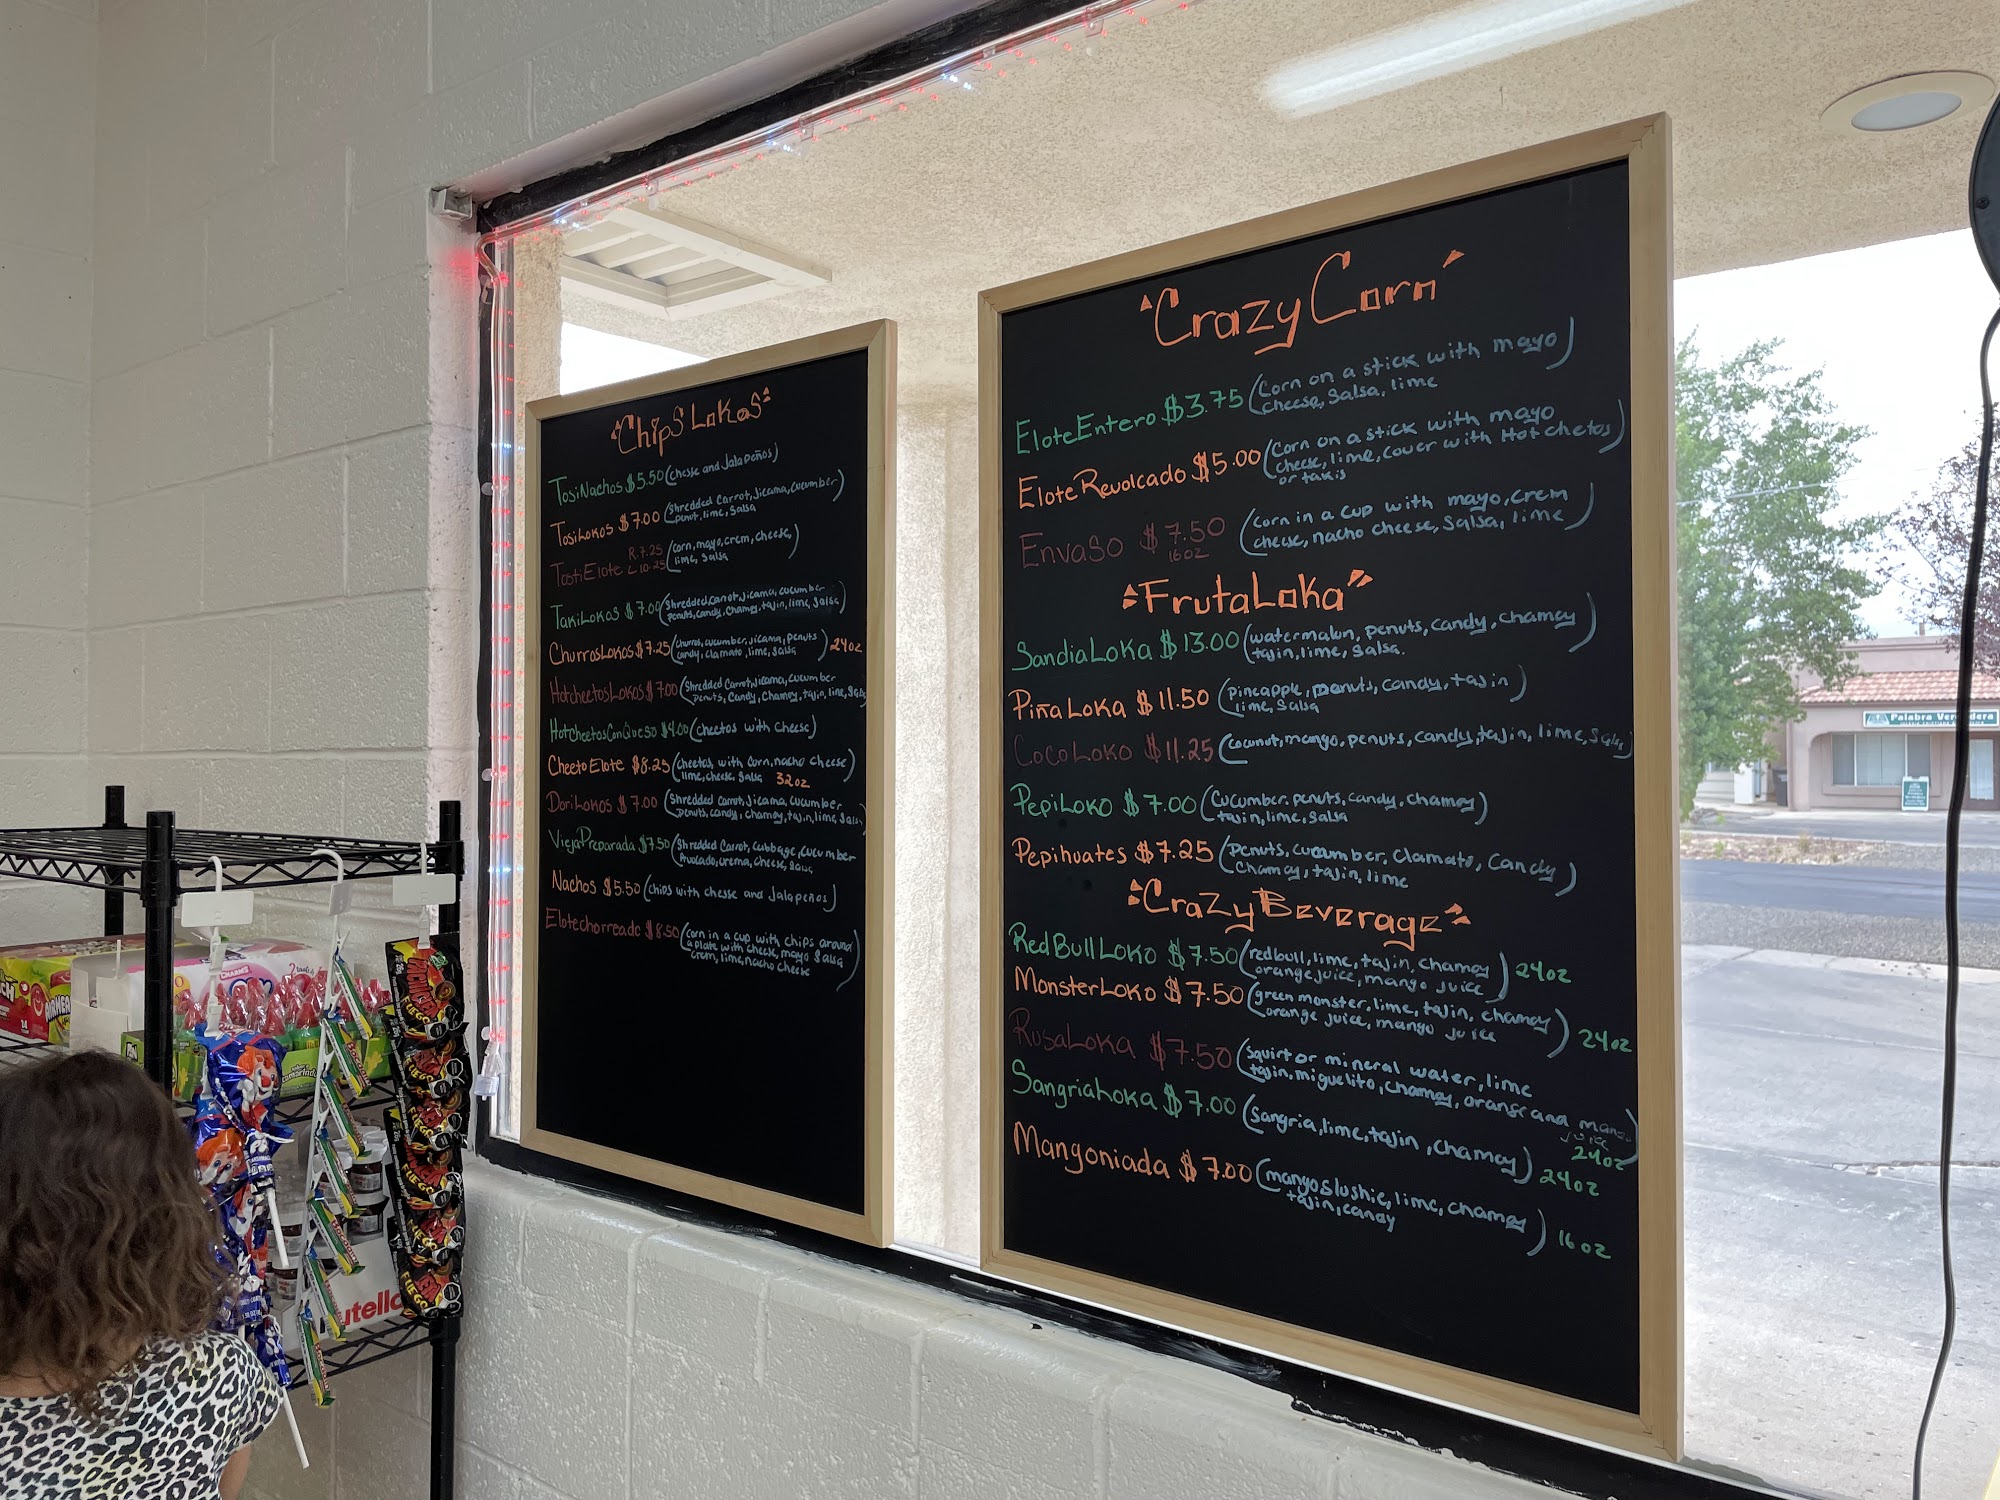 "Chips Lokas"
TosiNachos $5.50 (chesse and Jalapeños)
TosiLokos $7.00 (Shredded Carrot, Jicama, cucumber
penut, lime, Salsa)
TostiElote R. 7.25 L 10.25 (corn, mayo, crem, cheese,
lime, Salsa)
TakiLokos $7.00 (Shredded, Carrot, Jicama, cucumber
penuts, candy, Chamoy, tajin, lime, Salsa)
ChurrosLokos $7.25 (churros, cucumber, jicama, penuts
candy, clamato, lime, salsa) 24oz
HotcheetosLokos $7.00 (Shredded Carrot, Jicama, cucumber
penuts, Candy, Chamoy, tajin, lime, Salsa)
HotcheetosConQueso $4.00 (cheetos with cheese)
CheetoElote $8.25 (cheetos, with Corn, nacho cheese)
lime, cheese, Salsa 32oz
DoriLokos $7.00 (Shredded Carrot, Jicama, Cucumber
penuts, candy, chamoy, tajin, lime, Salsa)
ViejaPreparada $7.50 (Shredded Carrot, Cubbage, cucumber
Avocado, crema, cheese, Salsa
Nachos $5.50 (chips with chesse and Jalapeños)
Elotechorreado $8.50 (Corn in a cup with chips around
a plate with cheese, mayo Salsa
crem, lime, nacho cheese)
"Crazy Corn"
EloteEntero $3.75 (Corn on a stick with mayo)
cheese, Salsa, lime
EloteRevolcado $5.00 (Corn on a stick with mayo
cheese, lime, cover with Hot chetos)
or takis
Envaso $7.50 (Corn in a cup with mayo, crem
16oz cheese, nacho cheese, Salsa, lime)
"FrutaLoka"
SandiaLoka $13.00 (watermalon, penuts, candy, chamoy)
tajin, lime, Salsa.
PiñaLoka $11.50 (pineapple, penuts, candy, tajin)
lime, Salsa
CocoLoko $11.25 (Coconut, mango, penuts, candy, tajin, lime, Salsa)
PepiLoko $7.00 (Cucumber. penuts, candy, chamoy)
tajin, lime, Salsa
Pepihuates $7.25 (Penuts, cucumber, Clamato, Candy
Chamoy, tajin, lime)
"Crazy Beverage"
RedBullLoko $7.50 (redbull, lime, tajin, chamoy
orange juice, mango juice) 24oz
MonsterLoko $7.50 (green monster, lime, tajin, chamoy
orange juice, mango juice) 24oz
RusaLoka $7.50 (Squirt or mineral water, lime
tajin, miguelito, chamoy, orange and mango
juice) 24oz
SangriaLoka $7.00 (Sangria, lime, tajin, chamoy) 24oz
Mangoniada $7.00 (mango slushie, lime, chamoy
tajin, candy) 16oz
Palabra Verdadera
AIRHEADS
CHARMS
FUEGO
FUEGO
FUEGO
utella